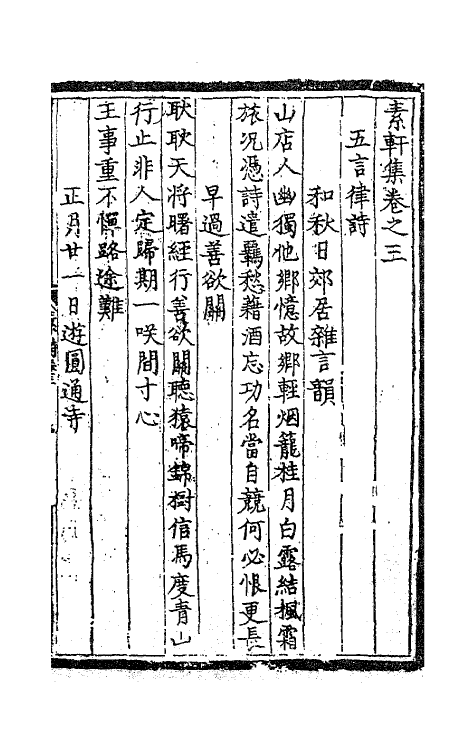 素軒集卷之三
五言律詩
和秋日郊居雜言韻
山店人幽獨他鄉憶故鄉輕烟籠桂月白露結楓霜
旅況憑詩遣羈愁藉酒忘功名當自競何必恨更長
早過善欲關
耿耿天將曙經行善欲關聽猿啼錦樹信馬度青山
行止非人定歸期一咲間寸心
王事重不憚路途難
正月廿一日遊圓通寺